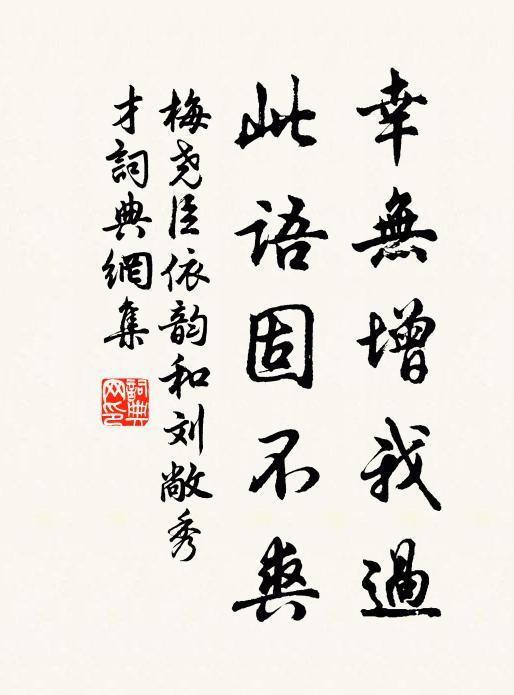 幸無增我過
此語固不爽
梅尧臣依韵和刘敞秀
才詞典網集
詞典
网印